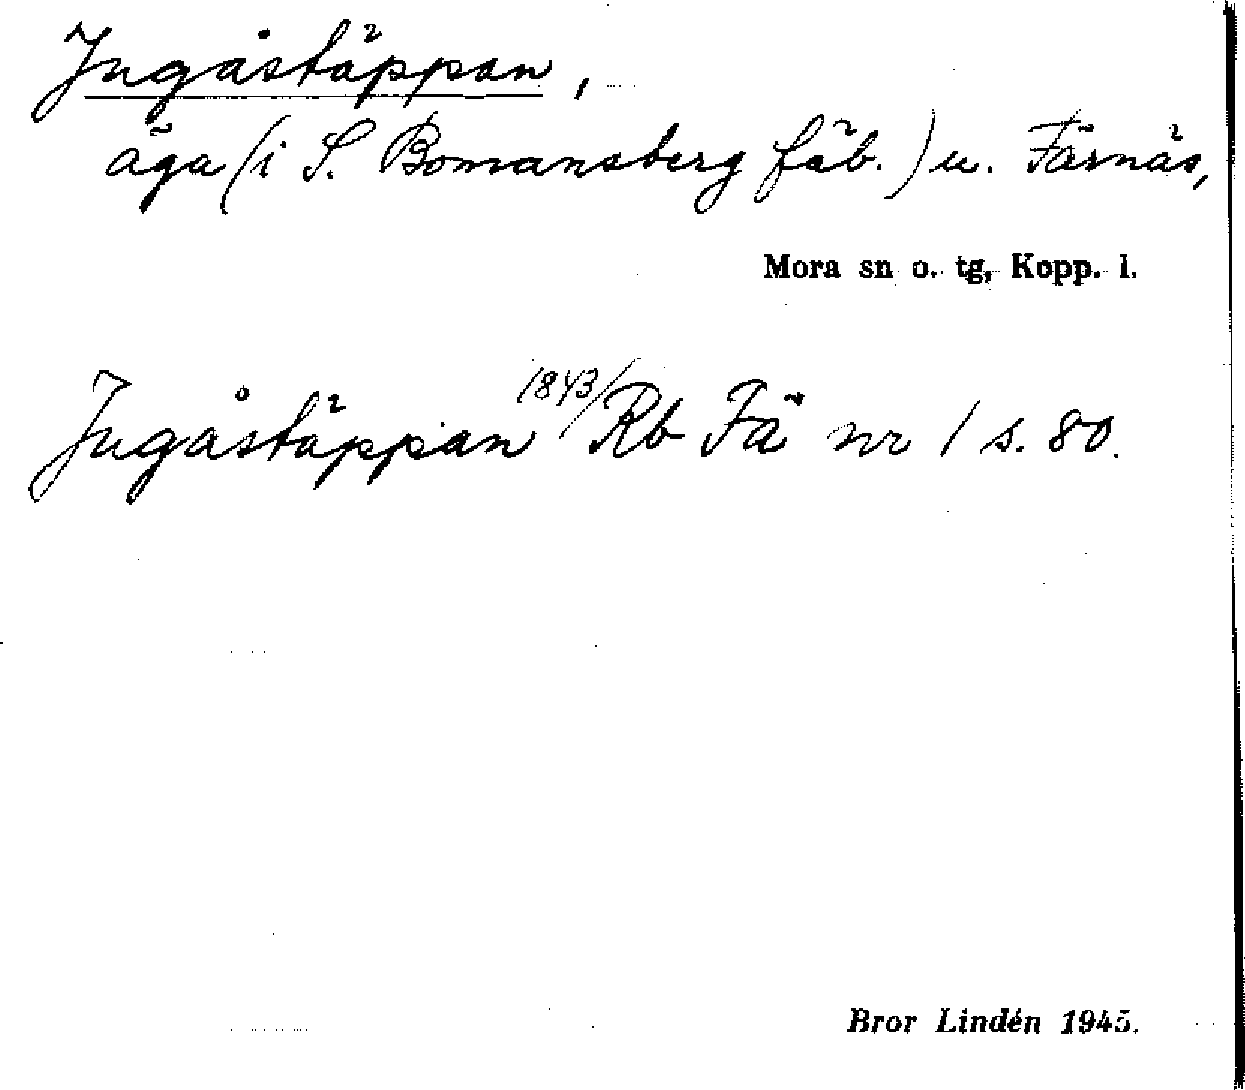 Jugåstäppan,
äga (i S. Bomansberg fäb.) u. Färnäs,
Mora sn o. tg, Kopp. l.
Jugåstäppan 1843/ Rb Fä nr 1 s. 80.
Bror Lindén 1945.